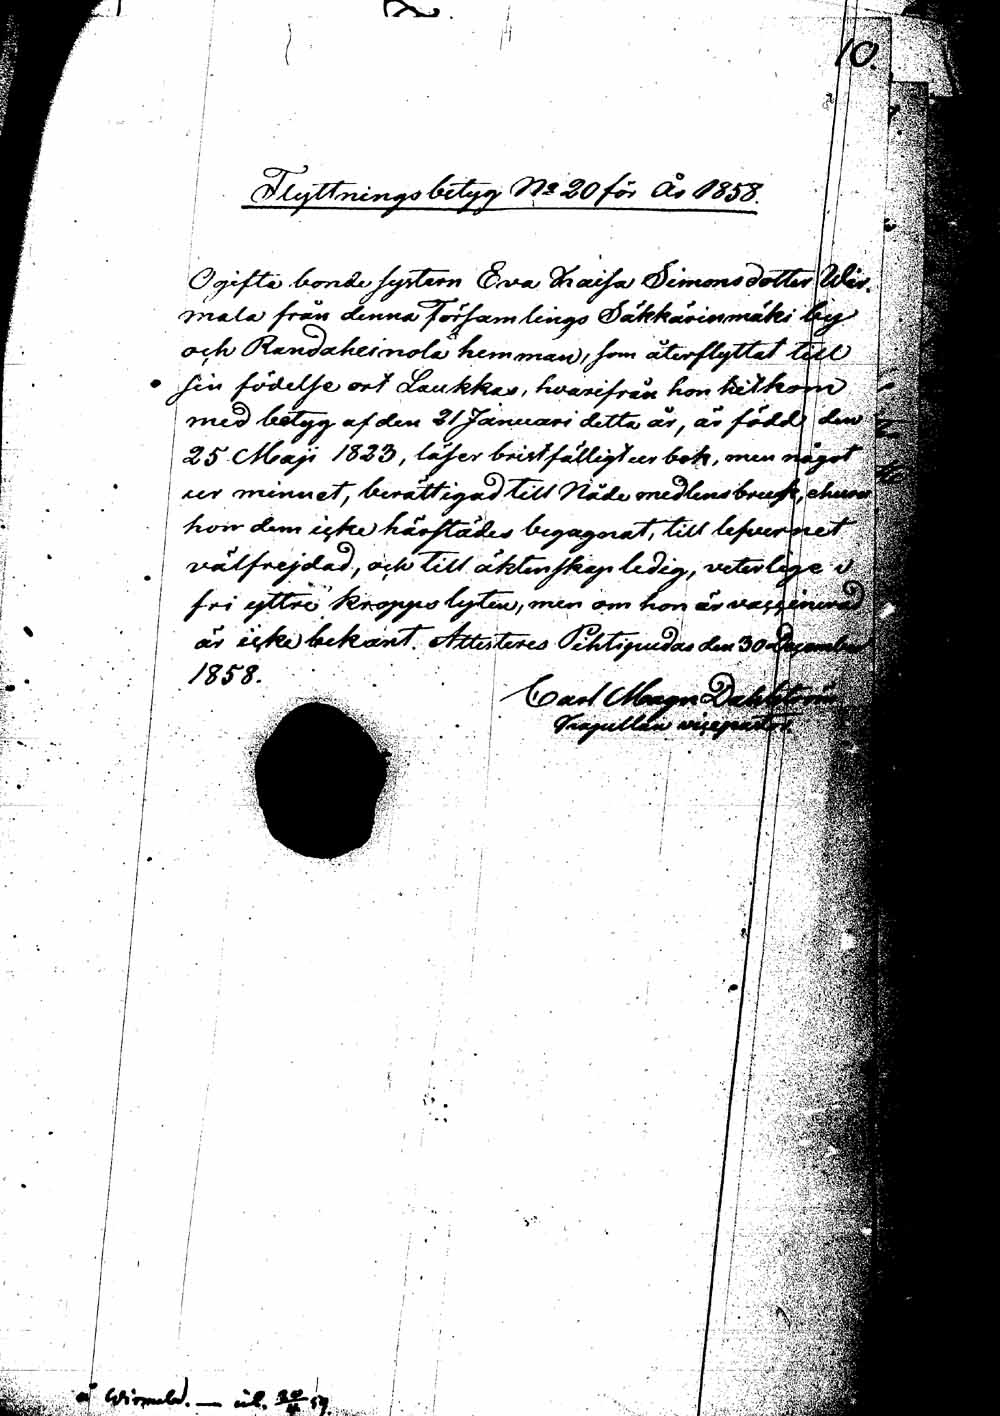 10.
Flyttningsbetyg No 20 för År 1858.
Ogifta bonde systern Eva Kaisa Simonsdotter Wir-
mala från denna Församlings Säkkärinmäki by
och Randaheinola hemman, som återflyttat till
sin födelse ort Laukkas, hvarifrån hon hitkom
med betyg af den 21 Januari detta år, är född den
25 Maji 1823, läser bristfälligt ur bok, men något
ur minnet, berättigad till Nåde medlens bruk, ehuru
hon dem icke härstädes begagnat, till lefvernet
välfrejdad, och till äktenskap ledig, veterlige
fri yttre kropps lyten, men om hon är vaccinerad
är icke bekant. Attesteras Pihtipudas den 30 December
1858.
Carl Magn Dahlström
Kapellan vicepastor.
Wirmala. — inl.